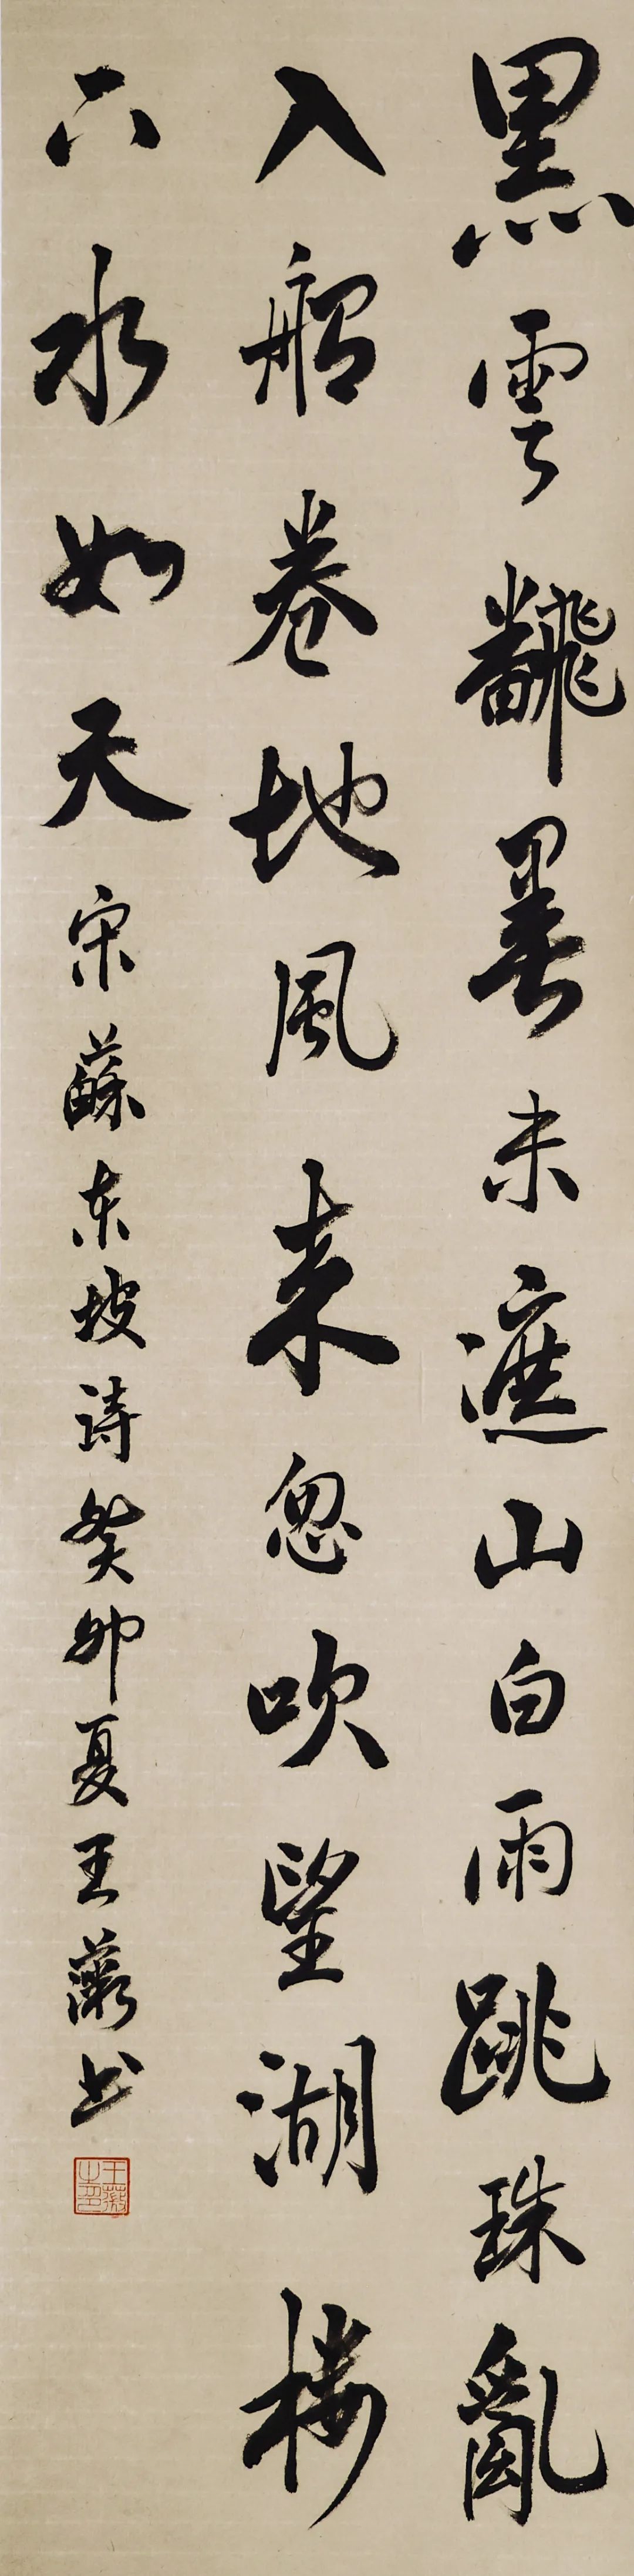 黑雲飜墨未遮山白雨跳珠亂
入船卷地風来忽吹望湖楼
下水如天宋蘇东坡诗癸卯夏王薇书
王薇之印